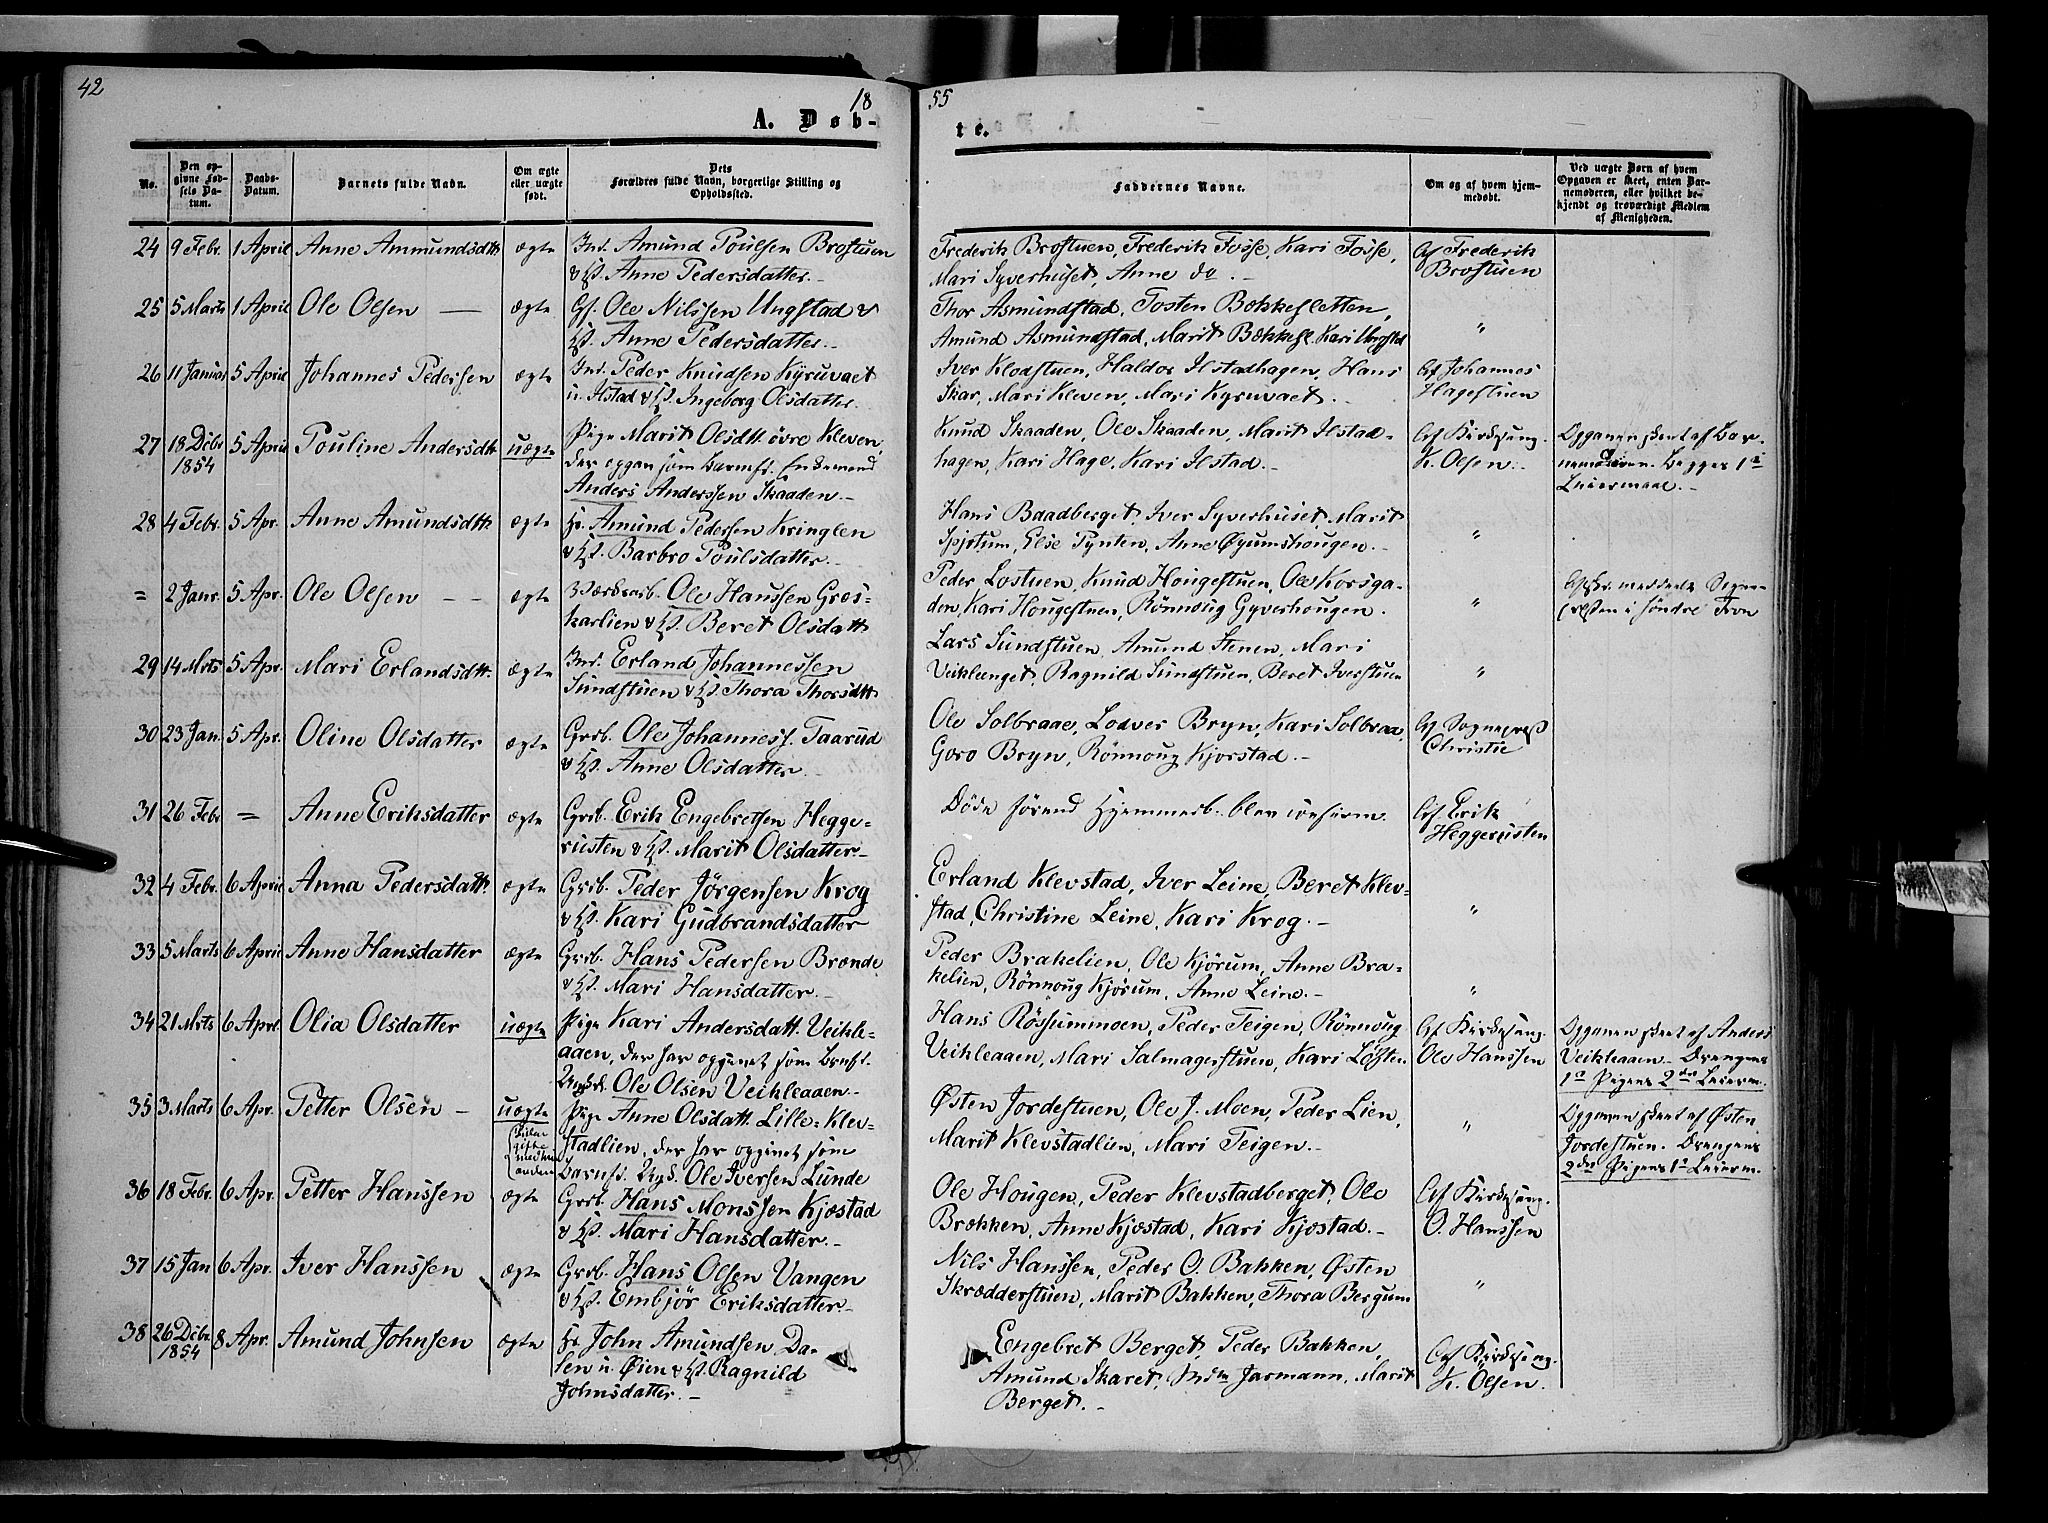 42
18
55
A. Døb-
te.
No.
Den op-
givne Fød-
sels Da-
tum.
Daabs-
Datum.
Barnets fulde Navn.
Om ægte
eller uægte
født.
Dets
Forældres fulde Navn, borgerlige Stilling og
Opholdssted.
Faddernes Navne.
Om og af hvem hjem-
medøbt.
Ved uægte Børn af hvem
Opgaven er skeet, enten Bar-
nemoderen, eller hvilket be-
kjendt og troværdigt Medlem
af Menigheden.
24 9 Febr. 1 April Anne Ammundsdtt. ægte Ind. Amund Poulsen Brostuen
& H. Anne Pedersdatter.-
Frederik Brostuen, Frederik Fosse, Kari Fosse,
Mari Syverhuset, Anne do.-
Af Frederik
Brostuen
25 5 Marts 1 April Ole Olsen — ægte Gf. Ole Nilssen Ungstad &
H. Anne Pedersdatter.-
Thor Asmundstad, Tosten Bækkesletten,
Amund Asmundstad, Marit Bækkesl. Kari Ungstad
"
26 11 Januar 5 April Johannes Pedersen ægte Ind. Peder Knudsen Kyruvaet
u. Ilstad & H. Ingeborg Olsdatter.
Iver Klodstuen, Haldor Ilstadhagen, Hans
Skar, Mari Kleven, Mari Kyruvaet.-
Af Johannes
Hagestuen
27 18 Decbr 1854 5 April Pouline Andersdtt. uægte Pige Marit Olsdtt. øvre Kleven,
der opgav som Barnef. Enkemand
Anders Anderssen Skaaden.-
Knud Skaaden, Ole Skaaden, Marit Ilstad-
hagen, Kari Hage, Kari Ilstad.-
Af Kirkesang.
K. Olsen.-
Opgaven skeet af Bar-
nemoderen. Begges 1ste
Leiermaal.-
28 4 Febr. 5 Apr. Anne Amundsdtt. ægte Hr. Amund Pedersen Kringlen
& H. Barbro Poulsdatter.-
Hans Baadberget, Iver Syverhuset, Marit
Isjstum, Else Tynten, Anne Øyumshougen.-
"
= 2 Janr. 5 Apr. Ole Olsen - - ægte Værkarb. Ole Hanssen Græs-
karlien & H. Beret Olsdatt.
Peder Lostuen, Knud Hougestuen, Ole Korsga-
den, Kari Hougestuen, Rönnoug Gyverhougen.
"
meddeelt Sogne-
præsten i søndre Fron
29 14 Mrts 5 Apr. Mari Erlandsdtt. ægte Ind. Erland Johannessen
Sundstuen & H. Thora Thorsdtt.
Lars Sundstuen, Amund Stenen, Mari
Veikleenget, Ragnild Sundstuen, Beret Iverstuen
"
30 23 Jan. 5 Apr. Oline Olsdatter ægte Grb. Ole Johanness. Taarud
& H. Anne Olsdatter.-
Ole Solbraae, Lodver Bryn, Kari Solbraae,
Goro Bryn, Rönnoug Kjorstad.-
Af Sognepræst
Christie
31 26 Febr = Anne Eriksdatter ægte Grb. Erik Engebretsen Hegge-
rusten & H. Marit Olsdatter.-
Døde førend Hjemmed. blev confirm.
Af Erik
Heggerusten
32 4 Febr. 6 April Anna Pedersdatt. ægte Grb. Peder Jörgensen Krog
& H. Kari Gudbrandsdatter
Erland Klevstad, Iver Leine, Beret Klev-
stad, Christine Leine, Kari Krog.-
"
33 5 Marts 6 April Anne Hansdatter ægte Grb. Hans Pedersen Brænde
& H. Mari Hansdatter.-
Peder Brakelien, Ole Kjörum, Anne Bra-
kelien, Rönnoug Kjörum, Anne Leine.-
"
34 21 Mrts 6 Apr. Olia Olsdatter uægte Pige Kari Andersdatt. Veikle-
aaen, der har opgivet som Barnef.
Ungk. Ole Olsen Veikleaaen.-
Hans Rössummoen, Peder Teigen, Rönnoug
Veikleaaen, Mari Salmagerstuen, Kari Løsten.
Af Kirkesang.
Ole Hanssen
Opgaven skeet af Anders
Veikleaaen. Drengens
1ste Pigens 2det Leierm.
35 3 Marts 6 Apr. Petter Olsen - uægte
Pige Anne Olsdatt. Lille-Klev-
stadlien, der har opgivet som
Barnef. Ungk. Ole Iversen Lunde
Østen Jordestuen, Ole J. Moen, Peder Lien,
Marit Klevstadlien, Mari Teigen.-
"
Opgaven skeet af Østen
Jordestuen. Drengens
2det Pigens 1ste Leierm.
36 18 Febr. 6 Apr. Petter Hanssen ægte Grb. Hans Monssen Kjæstad
& H. Mari Hansdatter.-
Ole Hougen, Peder Klevstadberget, Ole
Brækken, Anne Kjæstad, Kari Kjæstad.-
Af Kirkesang.
O. Hanssen
37 15 Jan 6 Apr. Iver Hanssen ægte Grb. Hans Olsen Vangen
& H. Embjör Eriksdatter.-
Nils Hanssen, Peder O. Bakken, Østen
Skrædderstuen, Marit Bakken, Thora Bergum
"
38 26 Decbr. 1854 8 Apr. Amund Johnsen ægte Hr. John Amundsen Da-
len u. Øien & H. Ragnild
Johnsdatter.-
Engebret Berget, Peder Bakken,
Amund Skaret, Mdm Jarmann, Marit
Berget.-
Af Kirkesang.
K. Olsen.